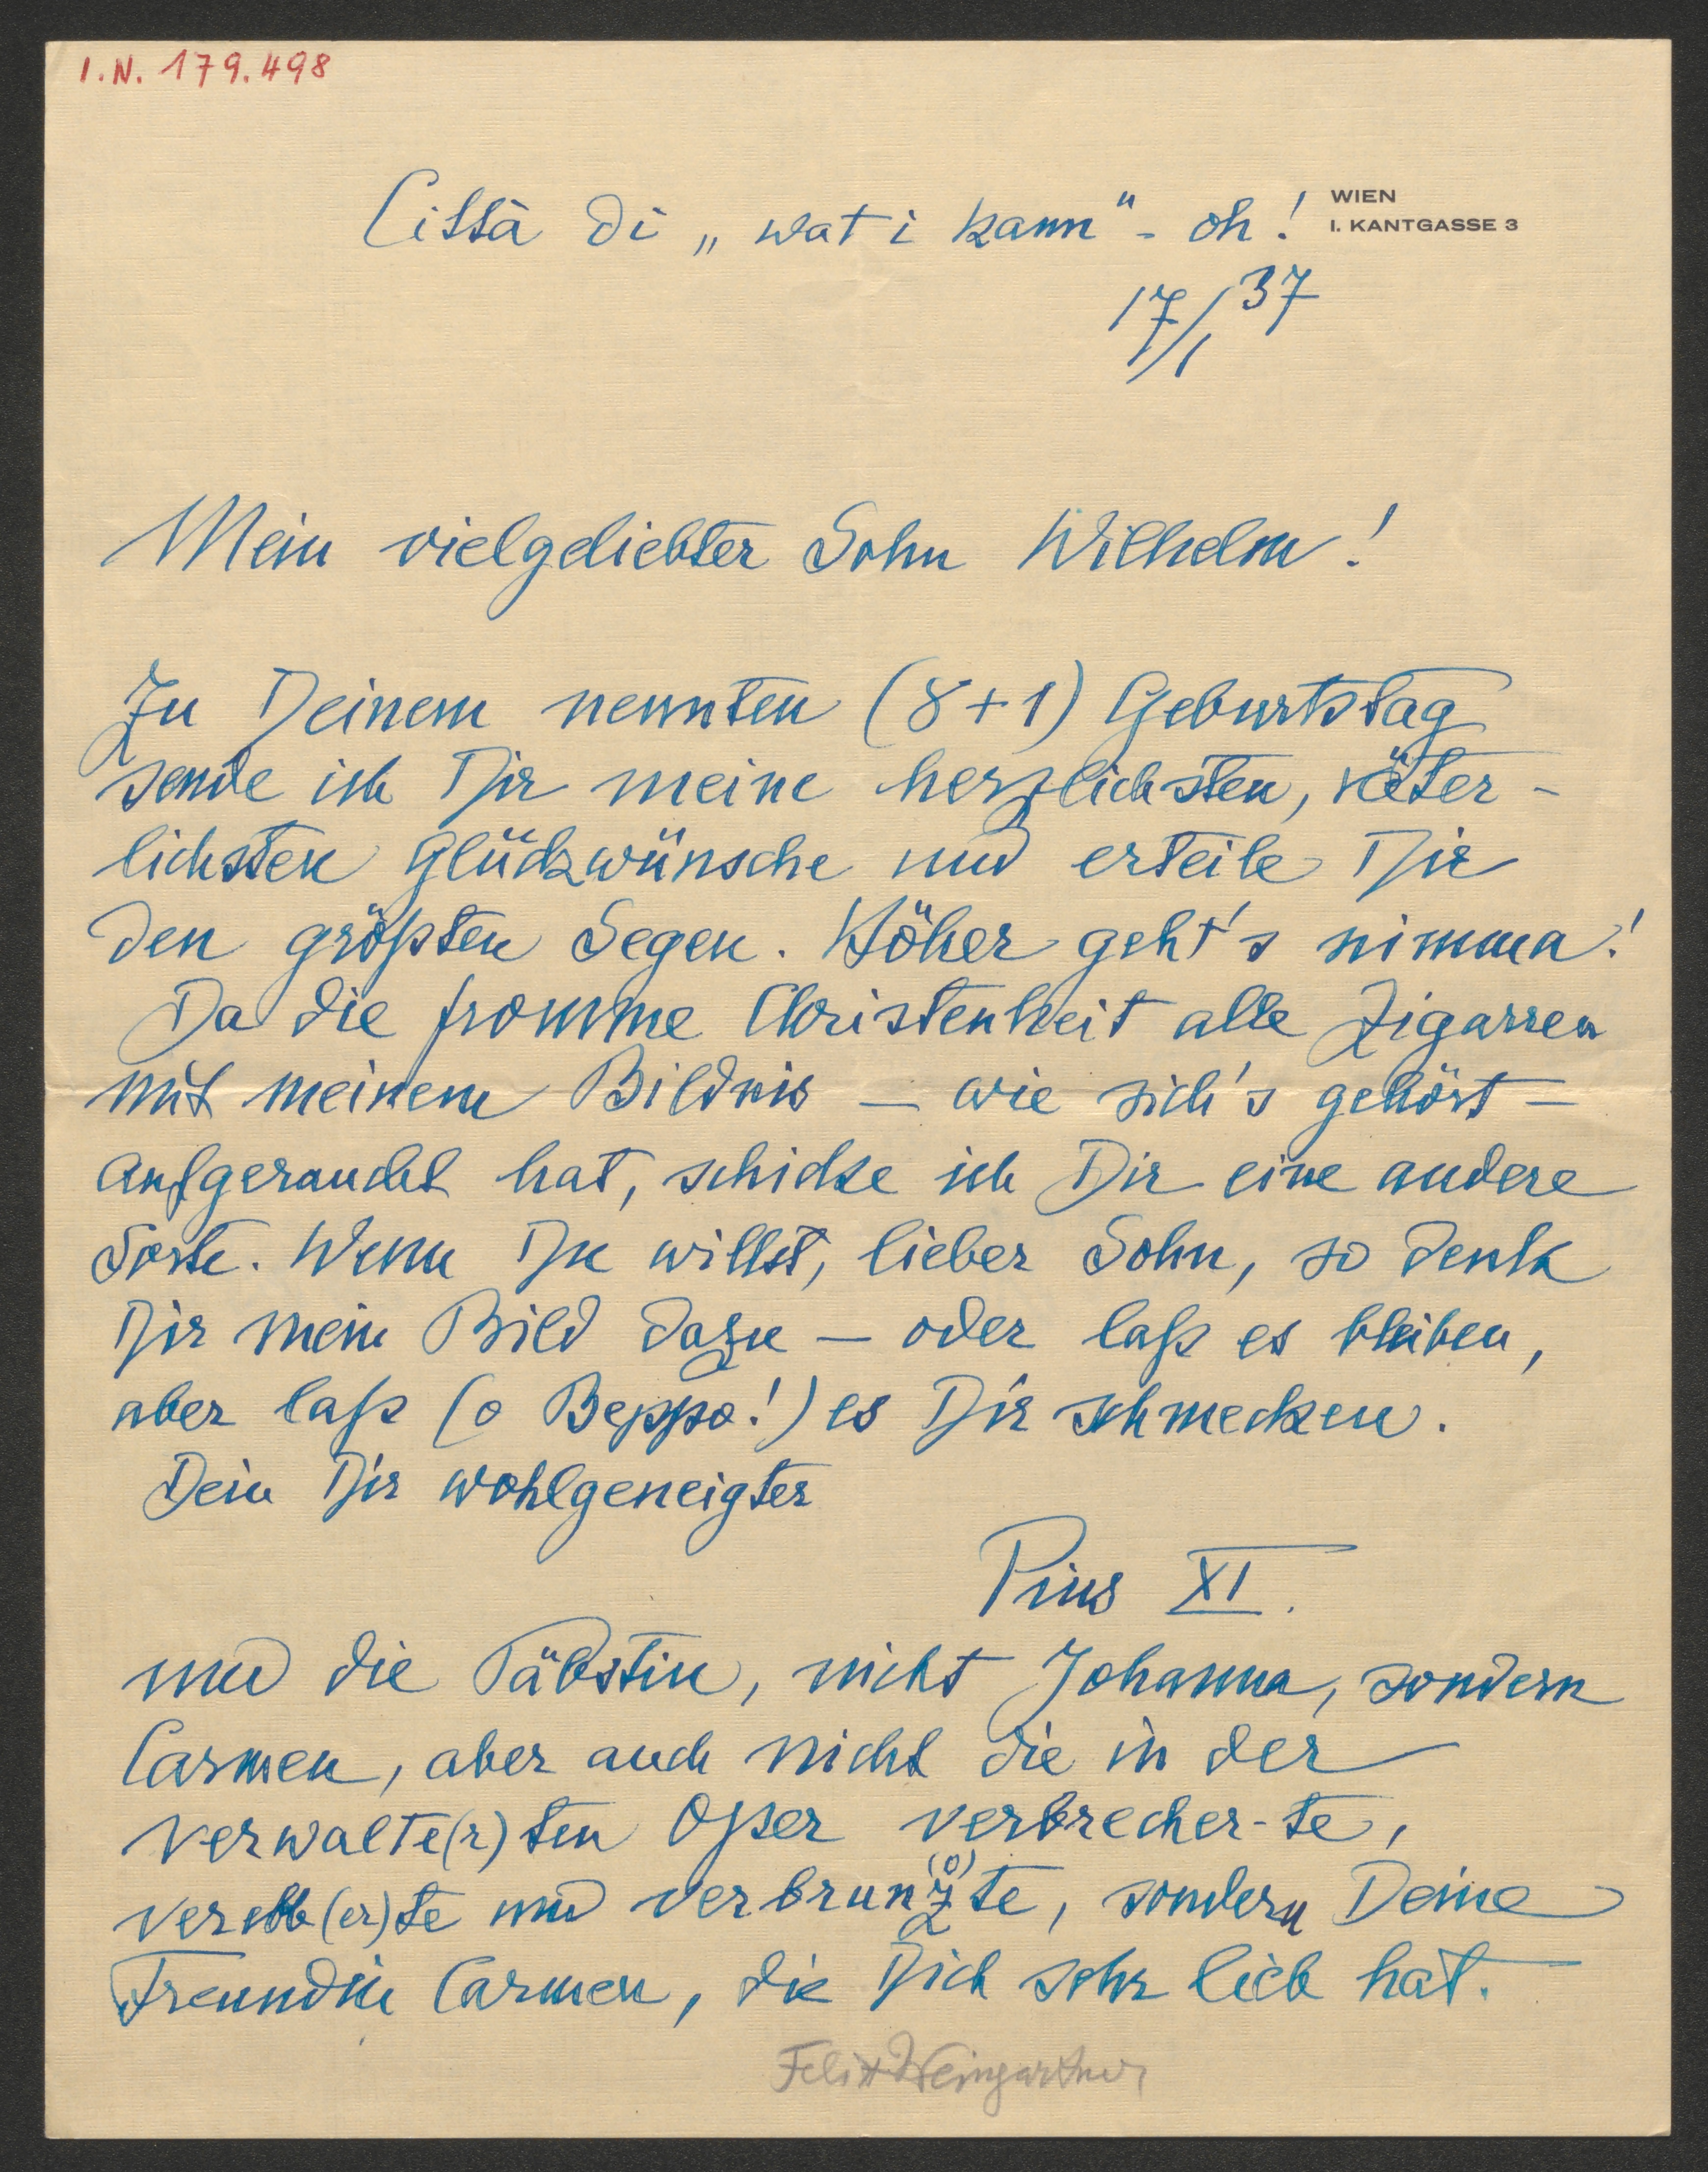 I.N. 179.498
Città di „wat i kann" - oh!
WIEN
I. KANTGASSE 3
17/1 37
Mein vielgeliebter Sohn Wilhelm!
Zu Deinem neunten (8+1) Geburtstag
sende ich Dir meine herzlichsten, väter-
lichsten Glückwünsche und erteile Dir
den größten Segen. Höher geht's nimma!
Da die fromme Christenheit alle Zigarren
mit meinem Bildnis — wie sich's gehört —
aufgeraucht hat, schicke ich Dir eine andere
Sorte. Wenn Du willst, lieber Sohn, so denk
Dir mein Bild dazu — oder laß es bleiben,
aber laß (o Beppo!) es Dir schmecken.
Dein Dir wohlgeneigter
Pius XI.
und die Päbstin, nicht Johanna, sondern
Carmen, aber auch nicht die in der
verwalte(r)ten Oper verbrecher-te,
verebb(er)te und verbrun(o)zte, sondern Deine
Freundin Carmen, die Dich sehr lieb hat.
Felix Weingartner